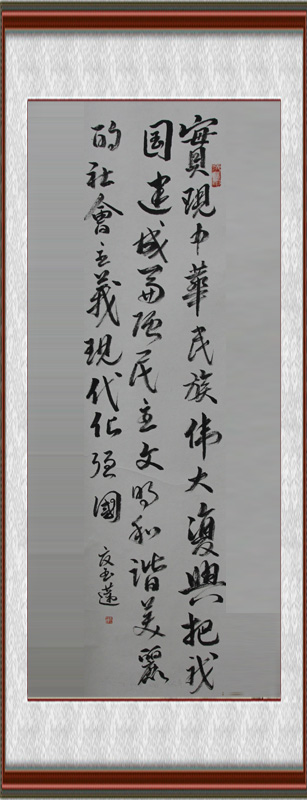 實現中華民族伟大復興把我
国建成富强民主文明和谐美麗
的社會主義現代化强國